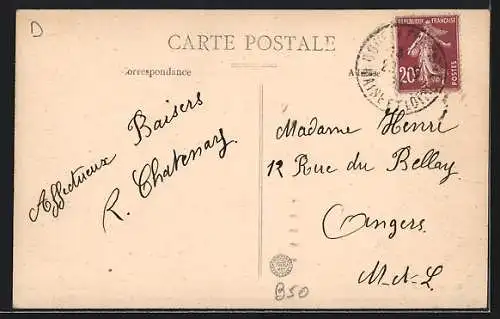 D
CARTE POSTALE
Correspondance
Adresse
REPUBLIQUE FRANÇAISE
20c
POSTES
MAINE-ET-LOIRE
Affectueux Baisers
R. Chatenay
Madame Henri
12 Rue du Bellay
Angers
M-&-L.
B50